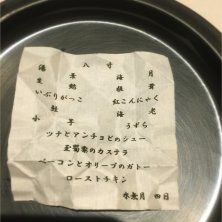 八寸
湯葉 海月
生麩 海茸
いぶりがっこ 紅こんにゃく
鮭 海老
小芋 うずら
ツナとアンチョビのシュー
玉蜀黍のカステラ
ベーコンとオリーブのガトー
ローストチキン
水無月 四日